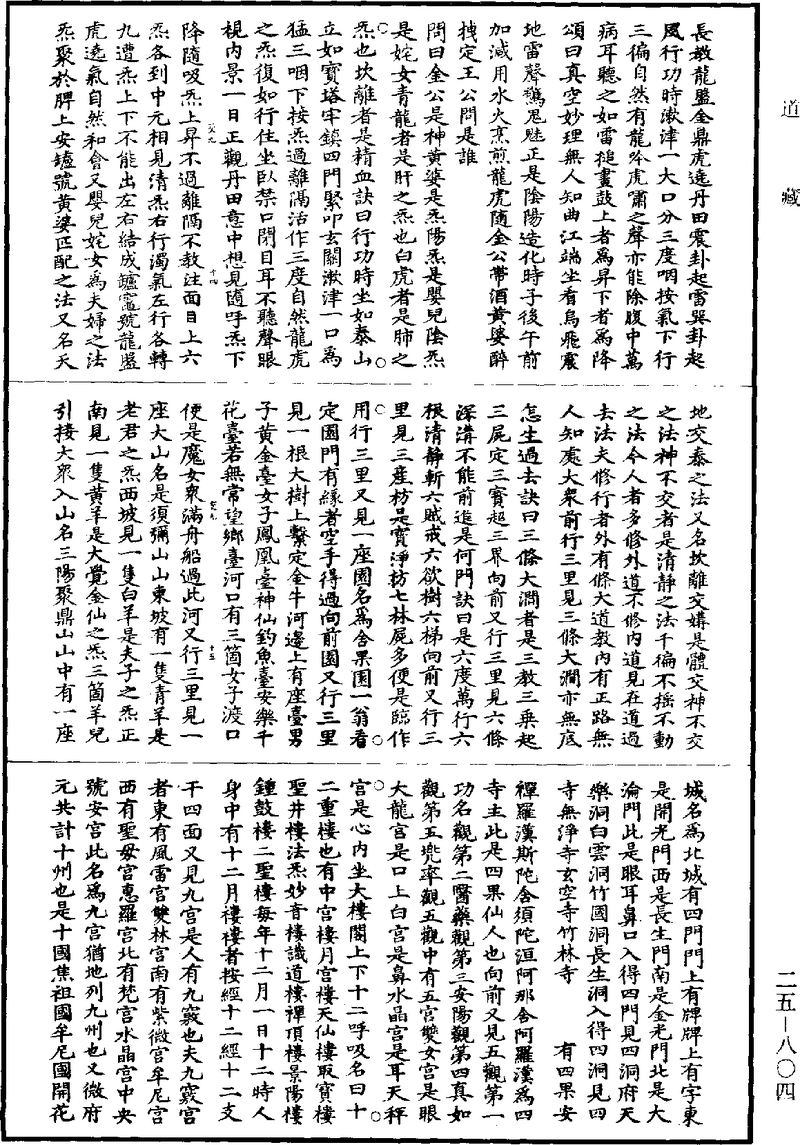 道藏
長教龍盤金鼎虎遶丹田震卦起雷巽卦起
風行功時漱津一大口分三度咽按氣下行
三徧自然有龍吟虎嘯之聲亦能除腹中萬
病耳聽之如雷搥畫鼓上者為昇下者為降
頌曰真空妙理無人知曲江端坐看烏飛震
地雷聲驚鬼魅正是陰陽造化時子後午前
加減用水火烹煎龍虎隨金公帶酒黃婆醉
拽定王公問是誰
問曰金公是神黃婆是炁陽炁是嬰兒陰炁
是姹女青龍者是肝之炁也白虎者是肺之
炁也坎離者是精血訣曰行功時坐如泰山
立如寶塔牢鎮四門緊叩玄關漱津一口為
猛三咽下按炁過離隔活作三度自然龍虎
之炁復如行住坐臥禁口閉目耳不聽聲眼
視內景一日正觀丹田意中想見隨呼炁下
降隨吸炁上昇不過離隔不教注面目上六
炁各到中元相見清炁右行濁氣左行各轉
九遭炁上下不能出左右結成鑪竈號龍盤
虎遶氣自然和會又嬰兒姹女為夫婦之法
炁聚於脾上安鑪號黃婆匹配之法又名天
地交泰之法又名坎離交媾是體交神不交
之法神不交者是清靜之法千徧不搖不動
之法今人者多修外道不修內道見在道過
去法夫修行者外有條大道教內有正路無
人知處大衆前行三里見三條大澗亦無底
怎生過去訣曰三條大澗者是三教三乗起
三屍定三寶超三界向前又行三里見六條
深溝不能前進是何門訣曰是六度萬行六
根清靜斬六賊戒六欲樹六梯向前又行三
里見三座枋是寶淨枋七林屍多便是臨作
用行三里又見一座園名為舍果園一翁看
定園門有緣者空手得過向前園又行三里
見一根大樹上繫定金牛河邊上有座臺男
子黃金臺女子鳳凰臺神仙釣魚臺安樂千
花臺若無常望鄉臺河口有三箇女子渡口
便是魔女衆滿舟船過此河又行三里見一
座大山名是須彌山山東坡有一隻青羊是
老君之炁西坡見一隻白羊是夫子之炁正
南見一隻黃羊是大覺金仙之炁三箇羊兒
引接大衆入山名三陽聚鼎山山中有一座
城名為北城有四門門上有牌牌上有字東
是開光門西是長生門南是金光門北是大
淪門此是眼耳鼻口入得四門見四洞府天
樂洞白雲洞竹園洞長生洞入得四洞見四
寺無淨寺玄空寺竹林寺　有四果安
禪羅漢斯陀舍須陀洹阿那舍阿羅漢為四
寺主此是四果仙人也向前又見五觀第一
功名觀第二醫藥觀第三安陽觀第四真如
觀第五兜率觀五觀中有五宮雙女宮是眼
大龍宮是口上白宮是鼻水晶宮是耳天秤
宮是心內坐大樓閣上下十二呼吸名曰十
二重樓也有中宮樓月宮樓天仙樓取寶樓
聖井樓法炁妙音樓識道樓禪頂樓景陽樓
鍾鼓樓二聖樓每年十二月一日十二時人
身中有十二月禮禮者按經十二經十二支
干四面又見九宮是人有九竅也夫九竅宮
者東有風雷宮雙林宮南有紫微宮牟尼宮
西有聖母宮惠羅宮北有梵宮水晶宮中央
號安宮此名為九宮猶地列九州也又微府
元共計十州也是十國焦祖國牟尼國開花
二五—八〇四